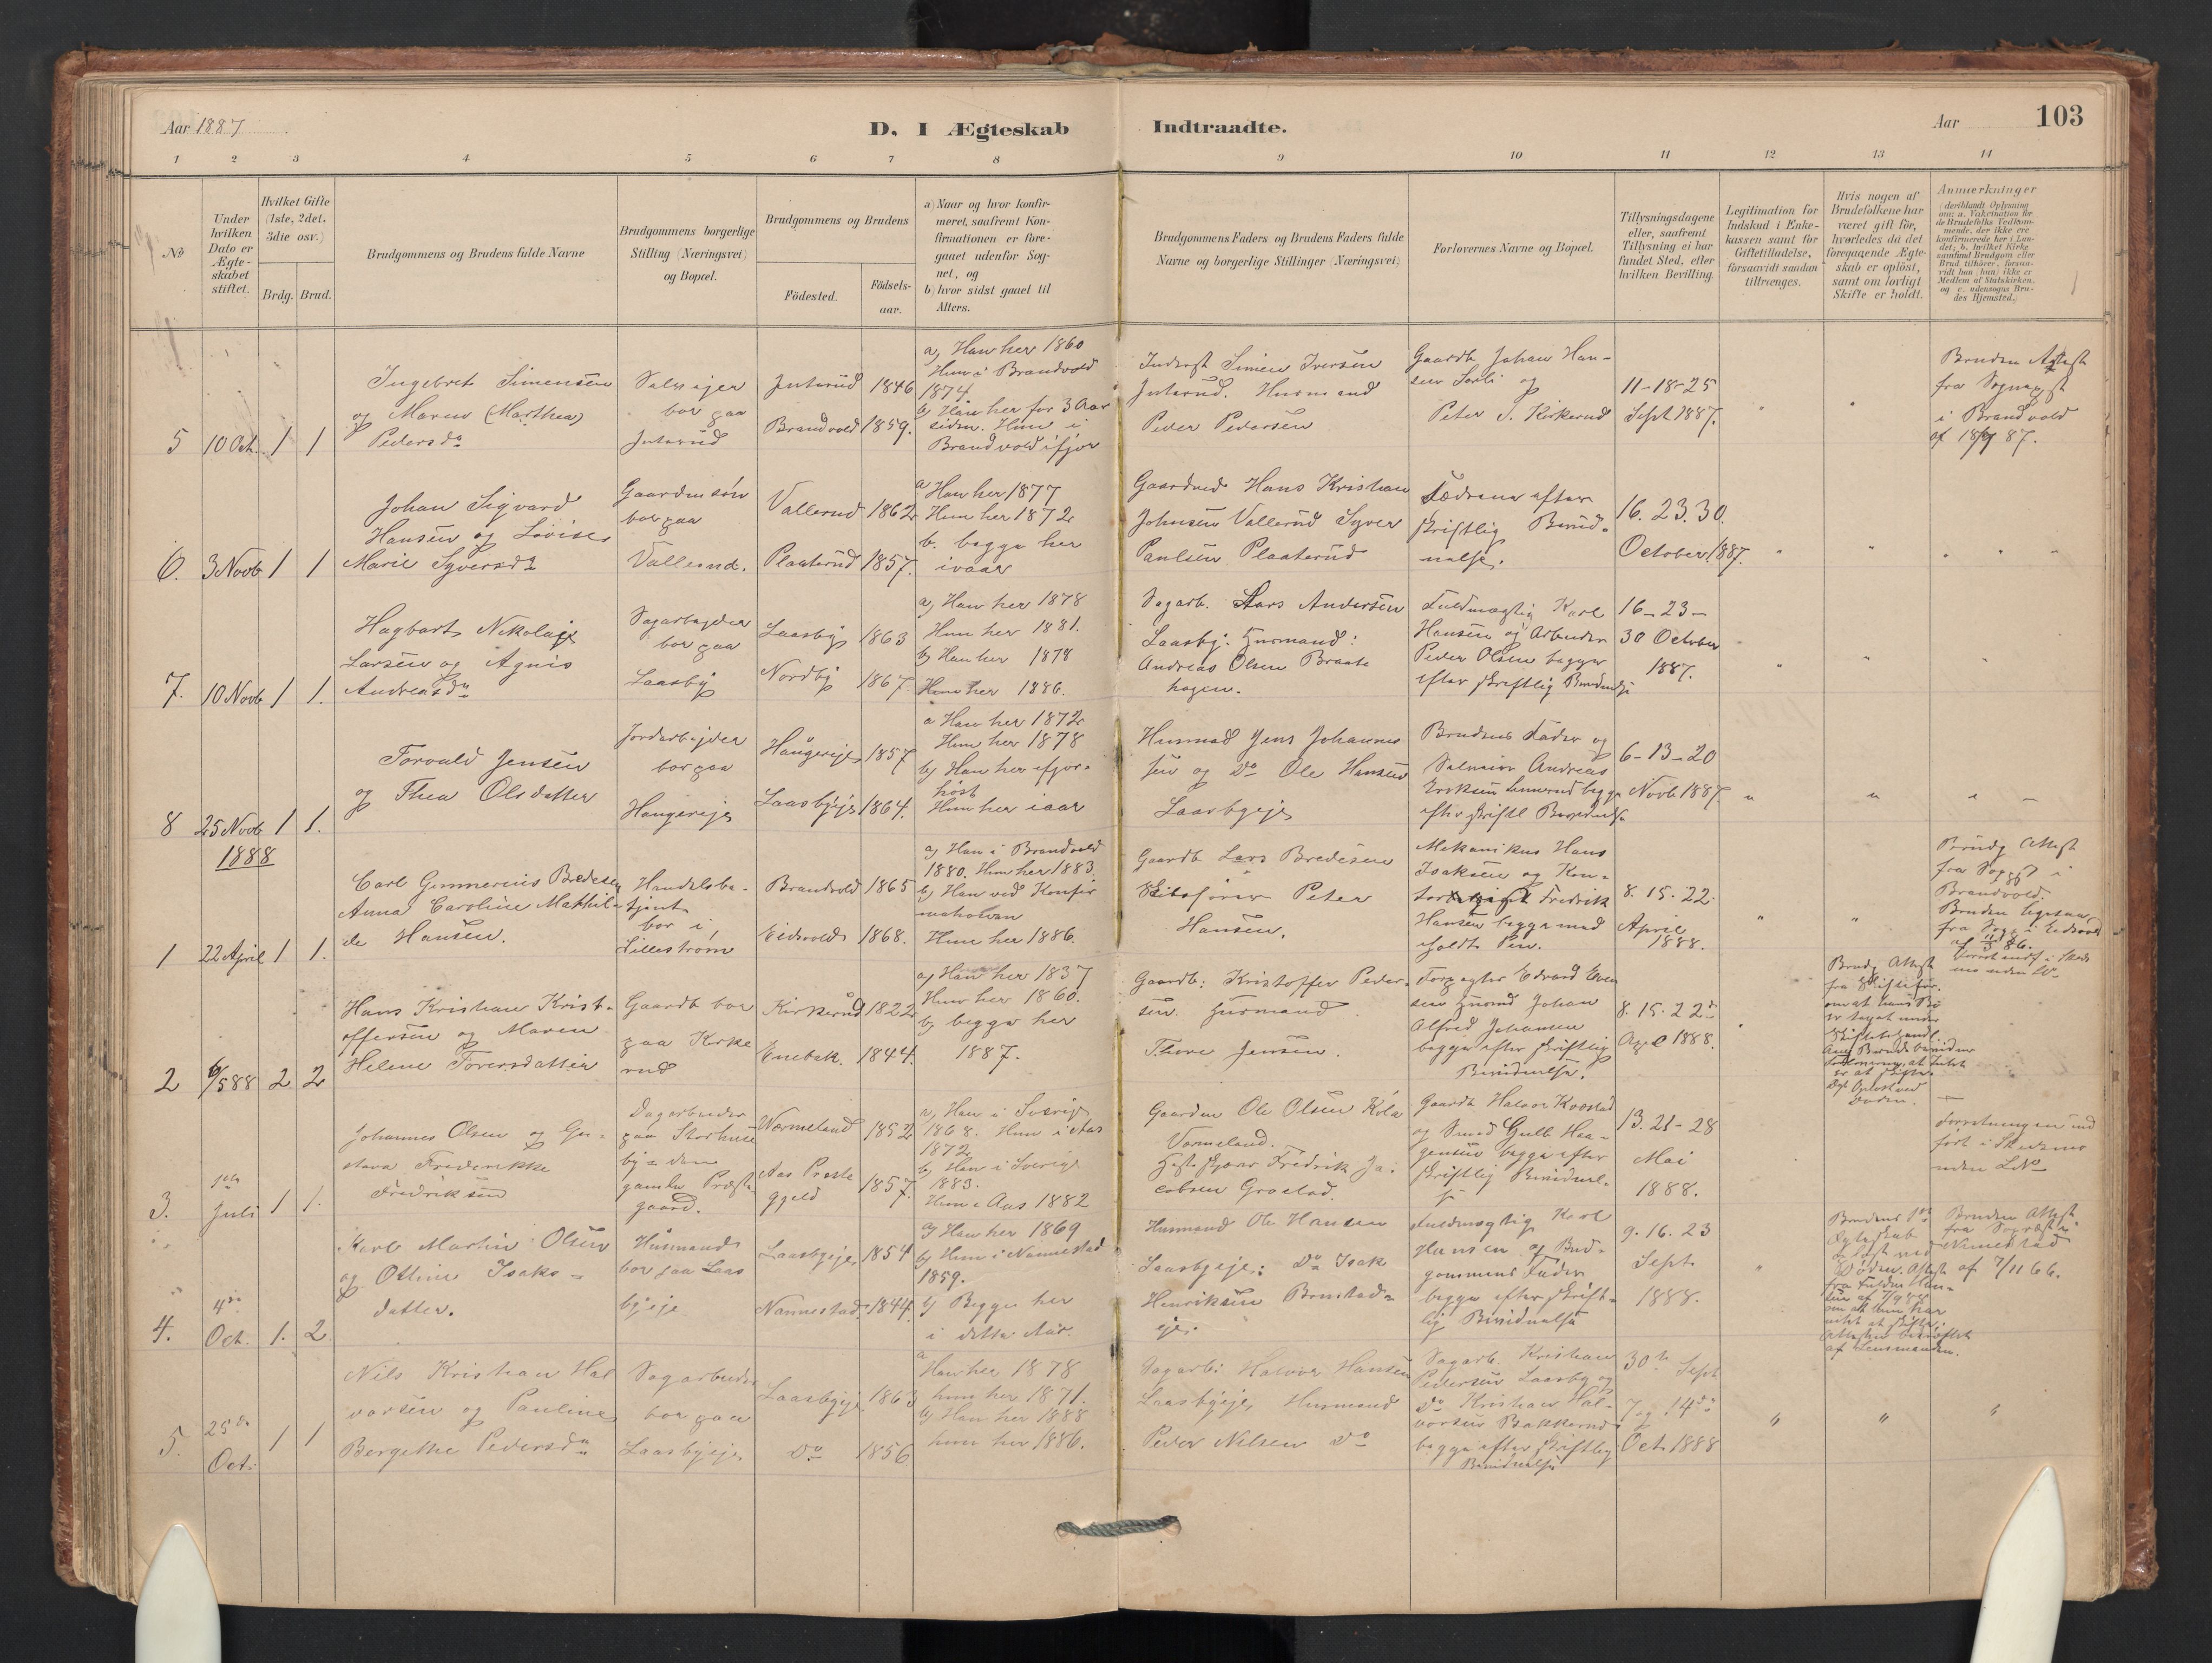 Aar 1887
D. I Ægteskab Indtraadte.
Aar
103
1 2 3 4 5 6 7 8 9 10 11 12 13 14
No
Under hvilken Dato er Ægteskabet stiftet.
Hvilket Gifte (1ste, 2det, 3die osv.)
Brdg. Brud.
Brudgommens og Brudens fulde Navne
Brudgommens borgerlige Stilling (Næringsvei) og Bopæl.
Brudgommens og Brudens
Födested.
Födsels-aar.
a) Naar og hvor konfir-
meret, saafremt Kon-
firmationen er fore-
gaaet udenfor Sog-
net, og
b) hvor sidst gaaet til
Alters.
Brudgommens Faders og Brudens Faders fulde
Navne og borgerlige Stillinger (Næringsvei)
Forlovernes Navne og Bopæl.
Tillysningsdagene
eller, saafremt
Tillysning ei har
fundet Sted, efter
hvilken Bevilling.
Legitimation for
Indskud i Enke-
kassen samt for
Giftetilladelse,
forsaavidt saadan
tiltrænges.
Hvis nogen af
Brudefolkene har
været gift för,
hvorledes da det
foregaaende Ægte-
skab er oplöst,
samt om lovligt
Skifte er holdt.
Anmerkninger
(deriblandt Oplysning
om: a. Vakcination for
de Brudefolks Vedkom-
mende, der ikke ere
konfirmerede her i Lan-
det; b. hvilket Kirke-
samfund Brudgom eller
Brud tilhörer, forsaa-
vidt han (hun) ikke er
Medlem af Statskirken,
og c. udensogns Bru-
des Hjemsted.)
5 10 Oct. 1 1
Ingebret Simensen
og Maren (Marthea)
Pedersdr
Selveijer
bor paa
Juterud
Juterud 1846
Brandvold 1859.
a) Han her 1860
Hun i Brandvold
1874
b) Han her for 3 Aar
siden. Hun i
Brandvold ifjor
Inderst Simen Iversen
Juterud. Husmand
Peder Pedersen
Gaardb. Johan Han-
sen Sorli og
Peter S. Kirkerud
11-18-25
Sept 1887.
Bruden Attest
fra Sognepst
i Brandvold
6. 3 Novb 1 1
Johan Sigvard
Hansen og Lovise
Marie Syversdr
Gaardmsön
bor paa
Vallerud.
Vallerud 1862
Plaaterud 1857.
a Han her 1877
Hun her 1872
b. begge her
ivaar
Gaardmd Hans Kristian
Johnsen Vallerud Syver
Paulsen Plaaterud
Fædrene efter
skriftlig Bevid-
nelse.
16. 23. 30.
October 1887.
7. 10 Novb 1 1.
Hagbart Nikolaj
Larsen og Agnis
Andreasdr
Sagarbejder
bor paa
Laasby
Laasby 1863
Nordby 1867.
a) Han her 1878
Hun her 1881.
b) Han her 1878
Hun her 1886.
Sagarb. Lars Andersen
Laasby. Husmand:
Andreas Olsen Braate
hagen.
Fuldmægtig Karl
Hansen og Arbeider
Peder Olsen begge
efter skriftlig
16-23-
30 October
1887.
8 25 Novb 1 1.
Torvald Jensen
og Thea Olsdatter
Jordarbejder
bor paa
Haugereje
Haugereje 1857
Laasbyeje 1864.
a Han her 1872
Hun her 1878
b) Han her ifjor
höst
Hun her iaar
Husmad Jens Johannes
sen og Do Ole Hansen
Laasbyeje
Brudens Fader og
Selveier Andreas
begge
efter skriftl
6-13-20
Novb 1887.
1888
1 22 April 1 1.
Carl Gunnerius Bredesen
Anna Caroline Mathil-
de Hansen.
Handelsbe-
tjent
bor i
Lilleström
Brandvold 1865
Eidsvold 1868.
a) Han i Brandvold
1880. Hun her 1883.
b) Han ved Konfir
mationen
Hun her 1886.
Gaardb Lars Bredesen
Peter
Hansen.
Mekanikus Hans
Isaksen og Kon-
Fredrik
Hansen begge med
holdt Pen.
8. 15. 22.
April
1888.
Brudg Attest
fra
Brandvold.
Bruden ligesaa
2 6/5 88 2 2
Hans Kristian Krist-
offersen og Maren
Helene Toversdatter
Gaardb bor
paa Kirke
rud
Kirkerud 1822
Enebak. 1844.
a) Han her 1837
Hun her 1860.
b) begge her
1887.
Gaardb: Kristoffer Peder-
sen. Husmand
Thore Jensen.
Edvard
Johan
Alfred Johansen
begge efter skriftlig
Bevidnelse.
8. 15. 22
April 1888.
Brudg Attest
fra Skiftefor.
om at hans Bo
er taget under
Skiftebehandl.
3. Juli 1 1.
Johannes Olsen og Gu-
stava Frederikke
Fredriksen
Dagarbeider
paa
by = den
gamle Præste-
gaard.
Wærmeland 1852
Aas Præste
gjeld 1857.
a) Han i Sverig
1868. Hun i Aas
1872
b) Han i Sverig
1883.
Hun i Aas 1882
Gaardm Ole Olsen Kola
Værmeland.
Fredrik Ja-
cobsen Grostad.
Gaardb Halvor
og Smed Gulb Haa-
gensen begge efter
skriftlig Bevidnel-
se
13. 21-28
Mai
1888.
Forretningen ud
fört i Skedsmo
4. Oct. 1. 2
Karl Martin Olsen
og Ottine Isaks-
datter.
Husmand
bor paa Laas
byeje
Laasbyeje 1854
Nannestad 1844.
a) Han her 1869
b) Hun i Nannestad
1859.
b) Begge her
i dette Aar.
Husmand Ole Hansen
Laasbyeje: Do Isak
Henriksen
eje.
Fuldmægtig Karl
Hansen og Brud-
gommens Fader
begge efter skrift-
lig Bevidnelse
9. 16. 23
Sept.
1888.
Brudens 1ste
Ægteskab
oplöst ved
Döden.
om at hun har
intet at skifte.
af Lensmanden.
Bruden Attest
af 7/11 66.
5. 25de Oct. 1 1
Nils Kristian Hal
vorsen og Pauline
Bergethe Pedersdr
Sagarbeider
bor paa
Laasbyeje.
Laasbyeje 1863
Do 1856
a
Han her 1878
hun her 1871.
b) Han her 1888
hun her 1886.
Sagarb: Halvor Hansen
Laasbyeje, Husmand
Peder Nilsen Do
Sagarb. Kristian
Pedersen Laasby og
Do Kristian Hal-
vorsen Bakkerud
begge efter skriftlig
Bevidnelse
30te Sept
7 og 14de
Oct. 1888